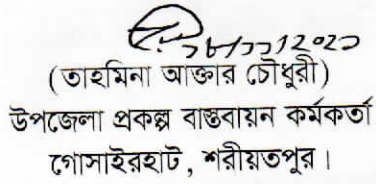 (তাহমিনা আক্তার চৌধুরী)
উপজেলা প্রকল্প বাস্তবায়ন কর্মকর্তা
গোসাইরহাট, শরীয়তপুর।